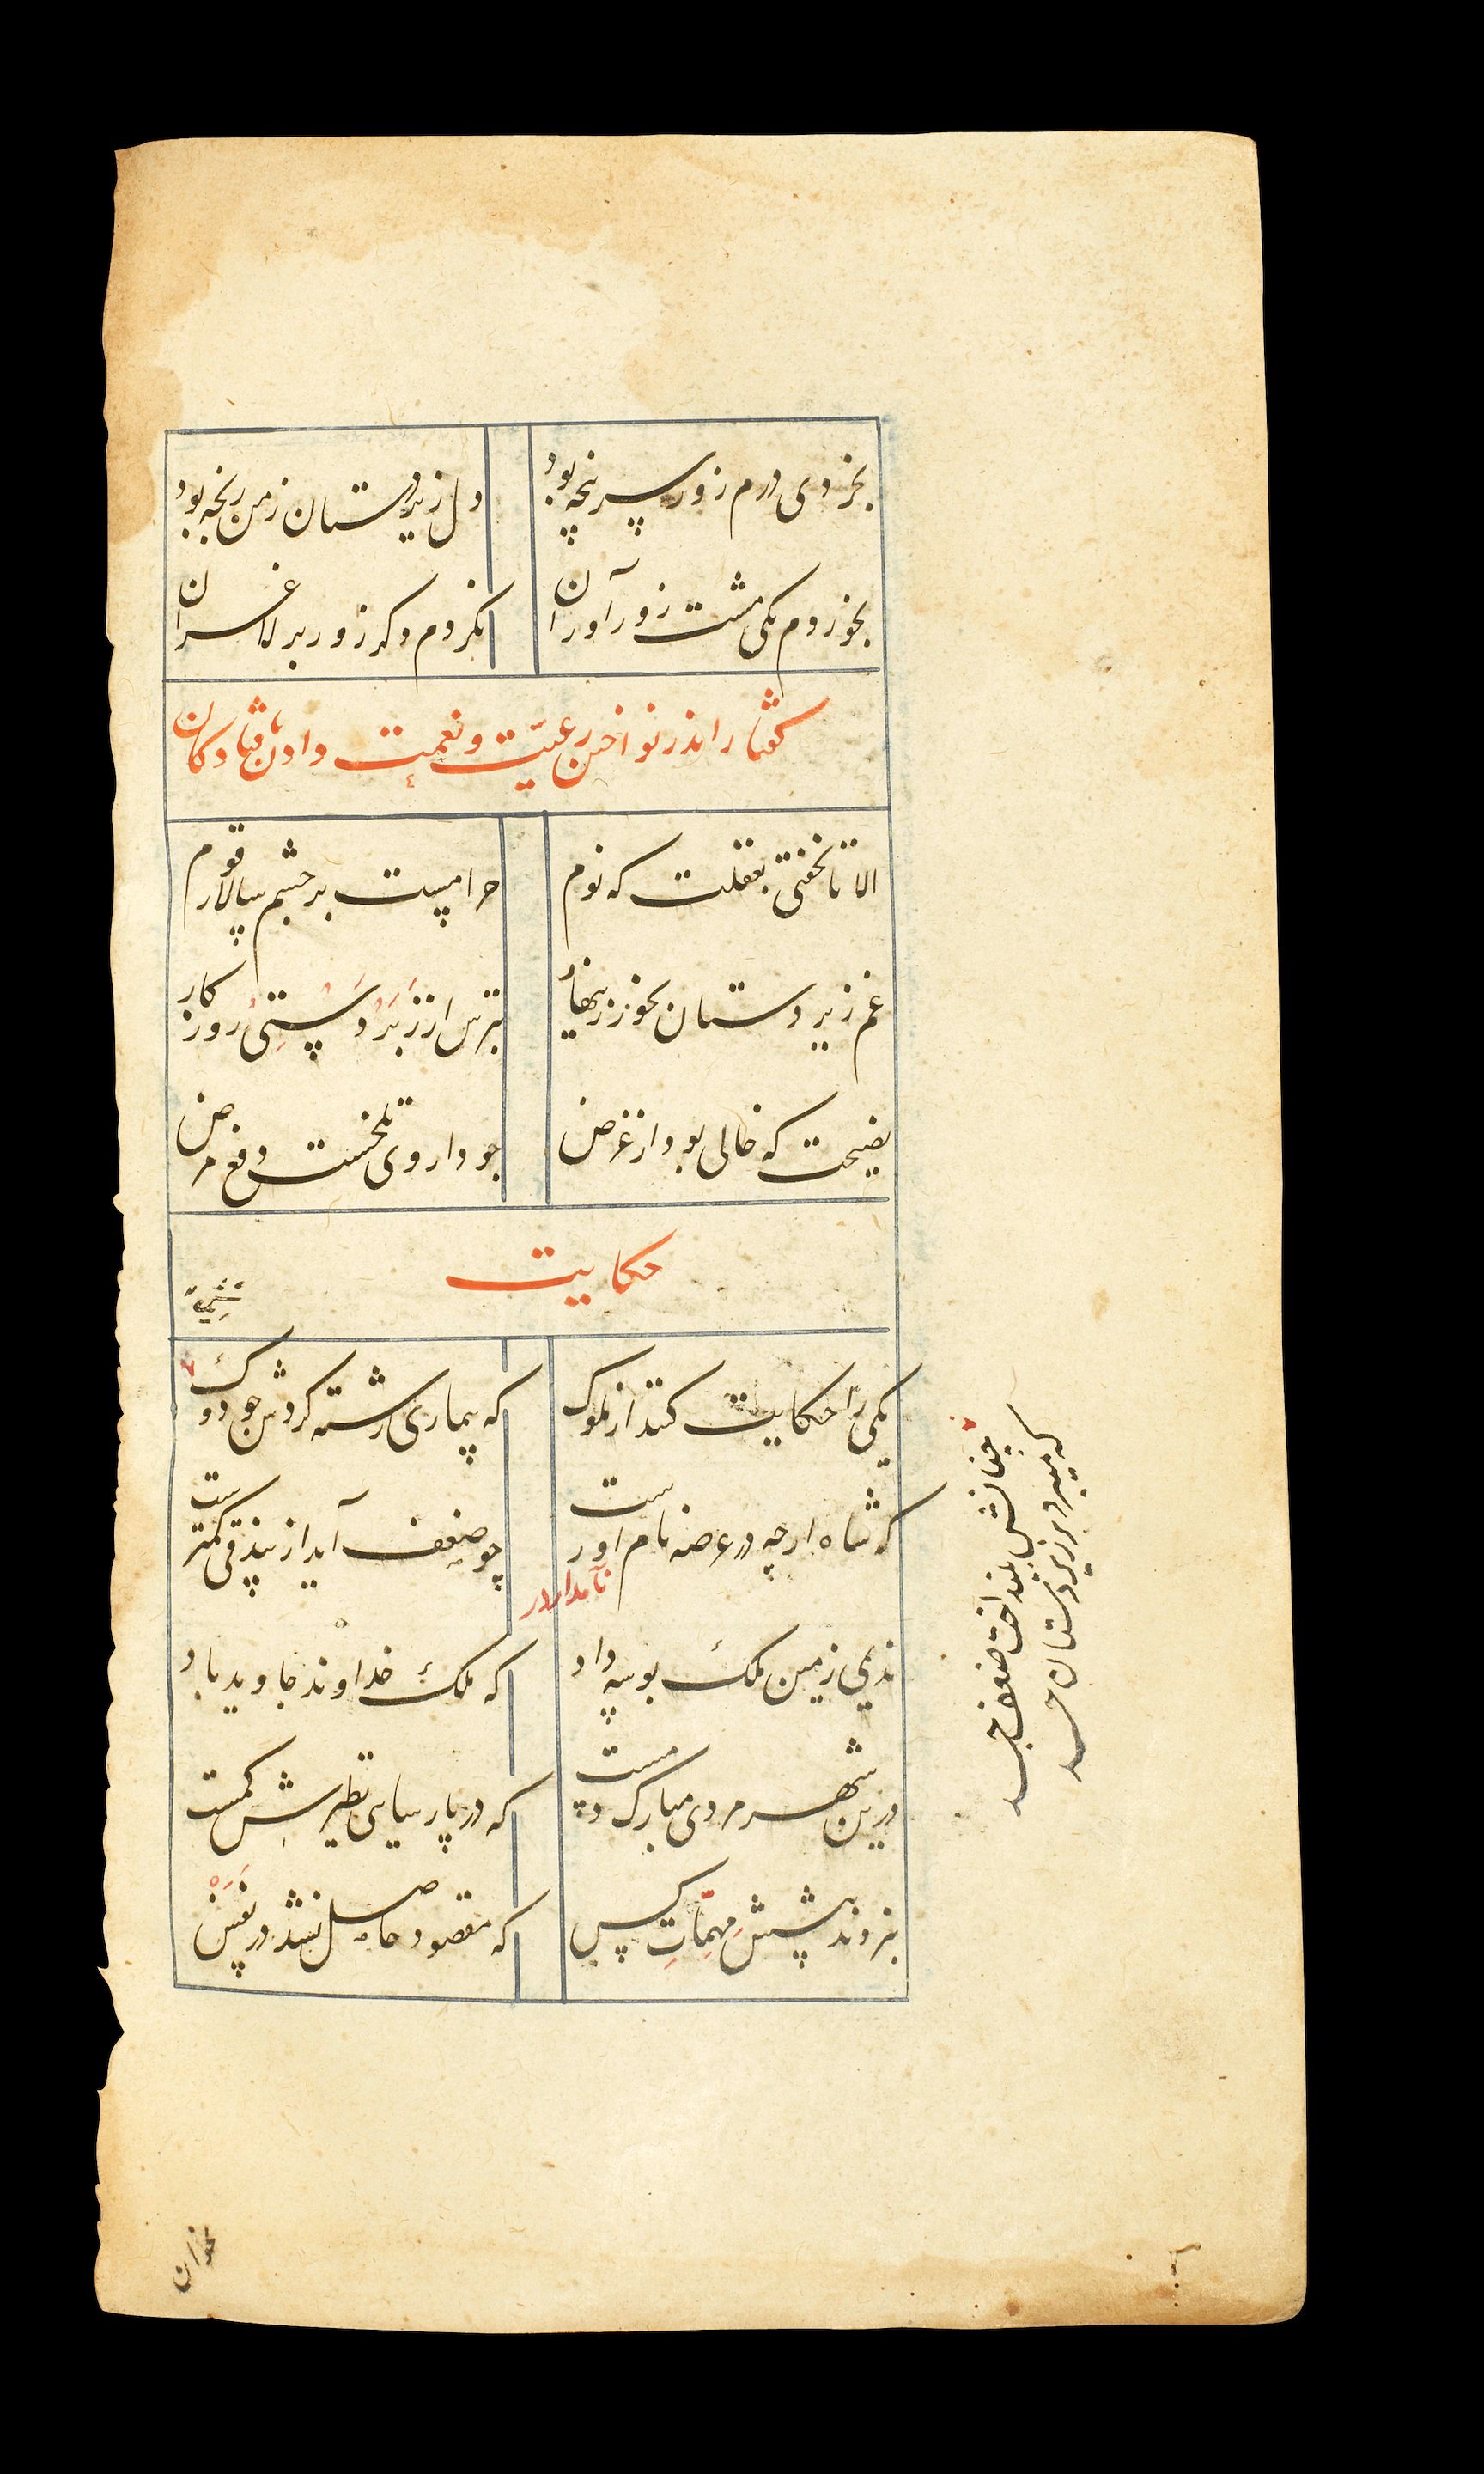 بخردی درم زور سر پنجه بود
دل زیردستان زمن رنجه بود
بخوردم یکی مشت زورآوران
نکردم دکر زور بر لاغران
کفتار اندر نواختن رعیت و نعمت دادن بافتادکان
الا تا نخفتی بغفلت که نوم
حرامست بر چشم سالار قوم
غم زیردستان بخور زینهار
بترس از زبردستی روزکار
نصیحت که خالی بود از غرض
چو داروی تلخست دفع مرض
حکایت
یکی را حکایت کنند از ملوک
که بیماری رشته کردش چو دوک
که شاه ارچه در عرصه نام اورست
چو ضعف آید از بیذقی کمترست
نامدار در
ندیمی زمین ملک بوسه داد
که ملک خداوند جاوید باد
درین شهر مردی مبارک دمست
که در پارسایی نظیرش کمست
ببردند پیشش مهمات کس
که مقصود حاصل نشد در نفس
چنانش بینداخت ضعف جسد
که میبرد بر زیردستان حسد